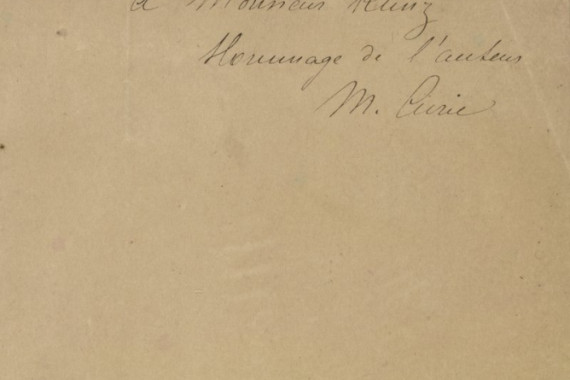 à Monsieur Kunz
Hommage de l'auteur
M. Curie